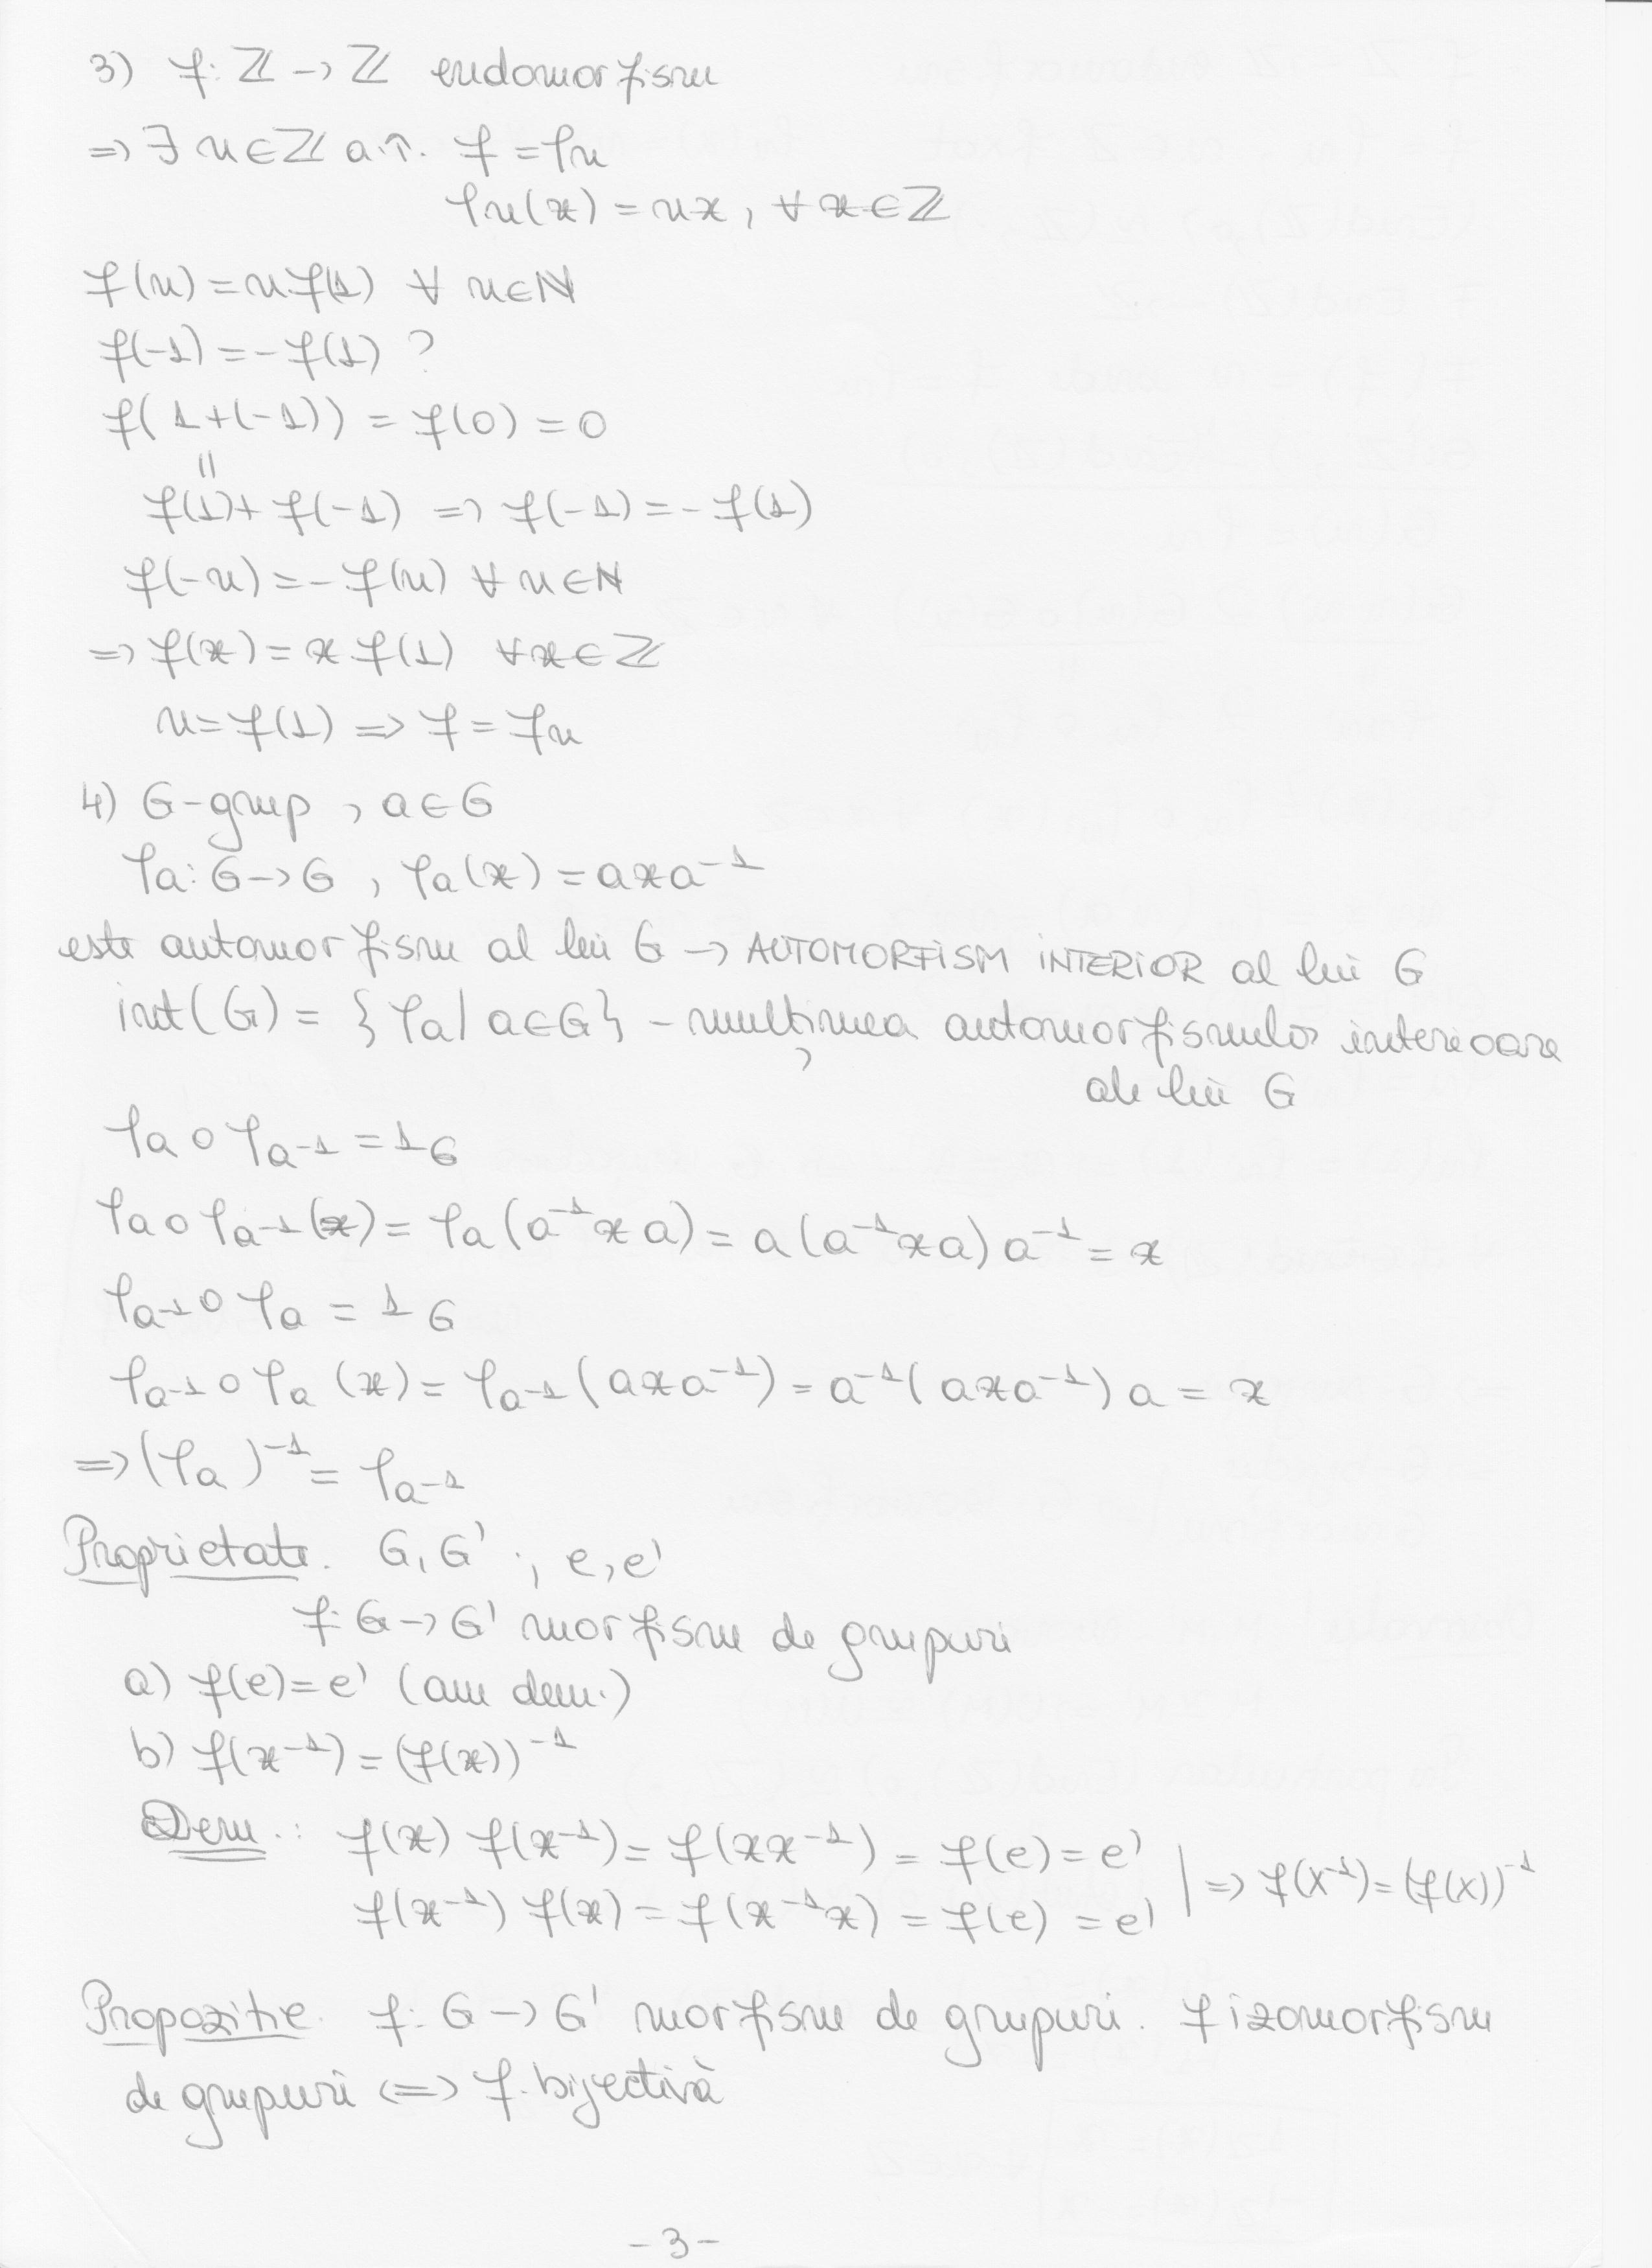 3) f: ℤ → ℤ endomorfism
=> ∃ n ∈ ℤ a.î. f = φn
φn(x) = nx, ∀ x ∈ ℤ
f(n) = n f(1) ∀ n ∈ ℕ
f(-1) = -f(1) ?
f(1+(-1)) = f(0) = 0
||
f(1) + f(-1) => f(-1) = -f(1)
f(-n) = -f(n) ∀ n ∈ ℕ
=> f(x) = x f(1) ∀ x ∈ ℤ
n = f(1) => f = fn
4) G-grup, a ∈ G
φa: G → G, φa(x) = axa⁻¹
este automorfism al lui G → AUTOMORFISM INTERIOR al lui G
int(G) = {φa | a ∈ G} - mulțimea automorfismelor interioare
ale lui G
φa ∘ φa⁻¹ = 1G
φa ∘ φa⁻¹(x) = φa(a⁻¹xa) = a(a⁻¹xa)a⁻¹ = x
φa⁻¹ ∘ φa = 1G
φa⁻¹ ∘ φa (x) = φa⁻¹(axa⁻¹) = a⁻¹(axa⁻¹)a = x
=> (φa)⁻¹ = φa⁻¹
Proprietate. G, G' ; e, e'
f: G → G' morfism de grupuri
a) f(e) = e' (am dem.)
b) f(x⁻¹) = (f(x))⁻¹
Dem.: f(x) f(x⁻¹) = f(xx⁻¹) = f(e) = e' | => f(x⁻¹) = (f(x))⁻¹
f(x⁻¹) f(x) = f(x⁻¹x) = f(e) = e'
Propozitie. f: G → G' morfism de grupuri. f izomorfism
de grupuri <=> f. bijectivă
-3-